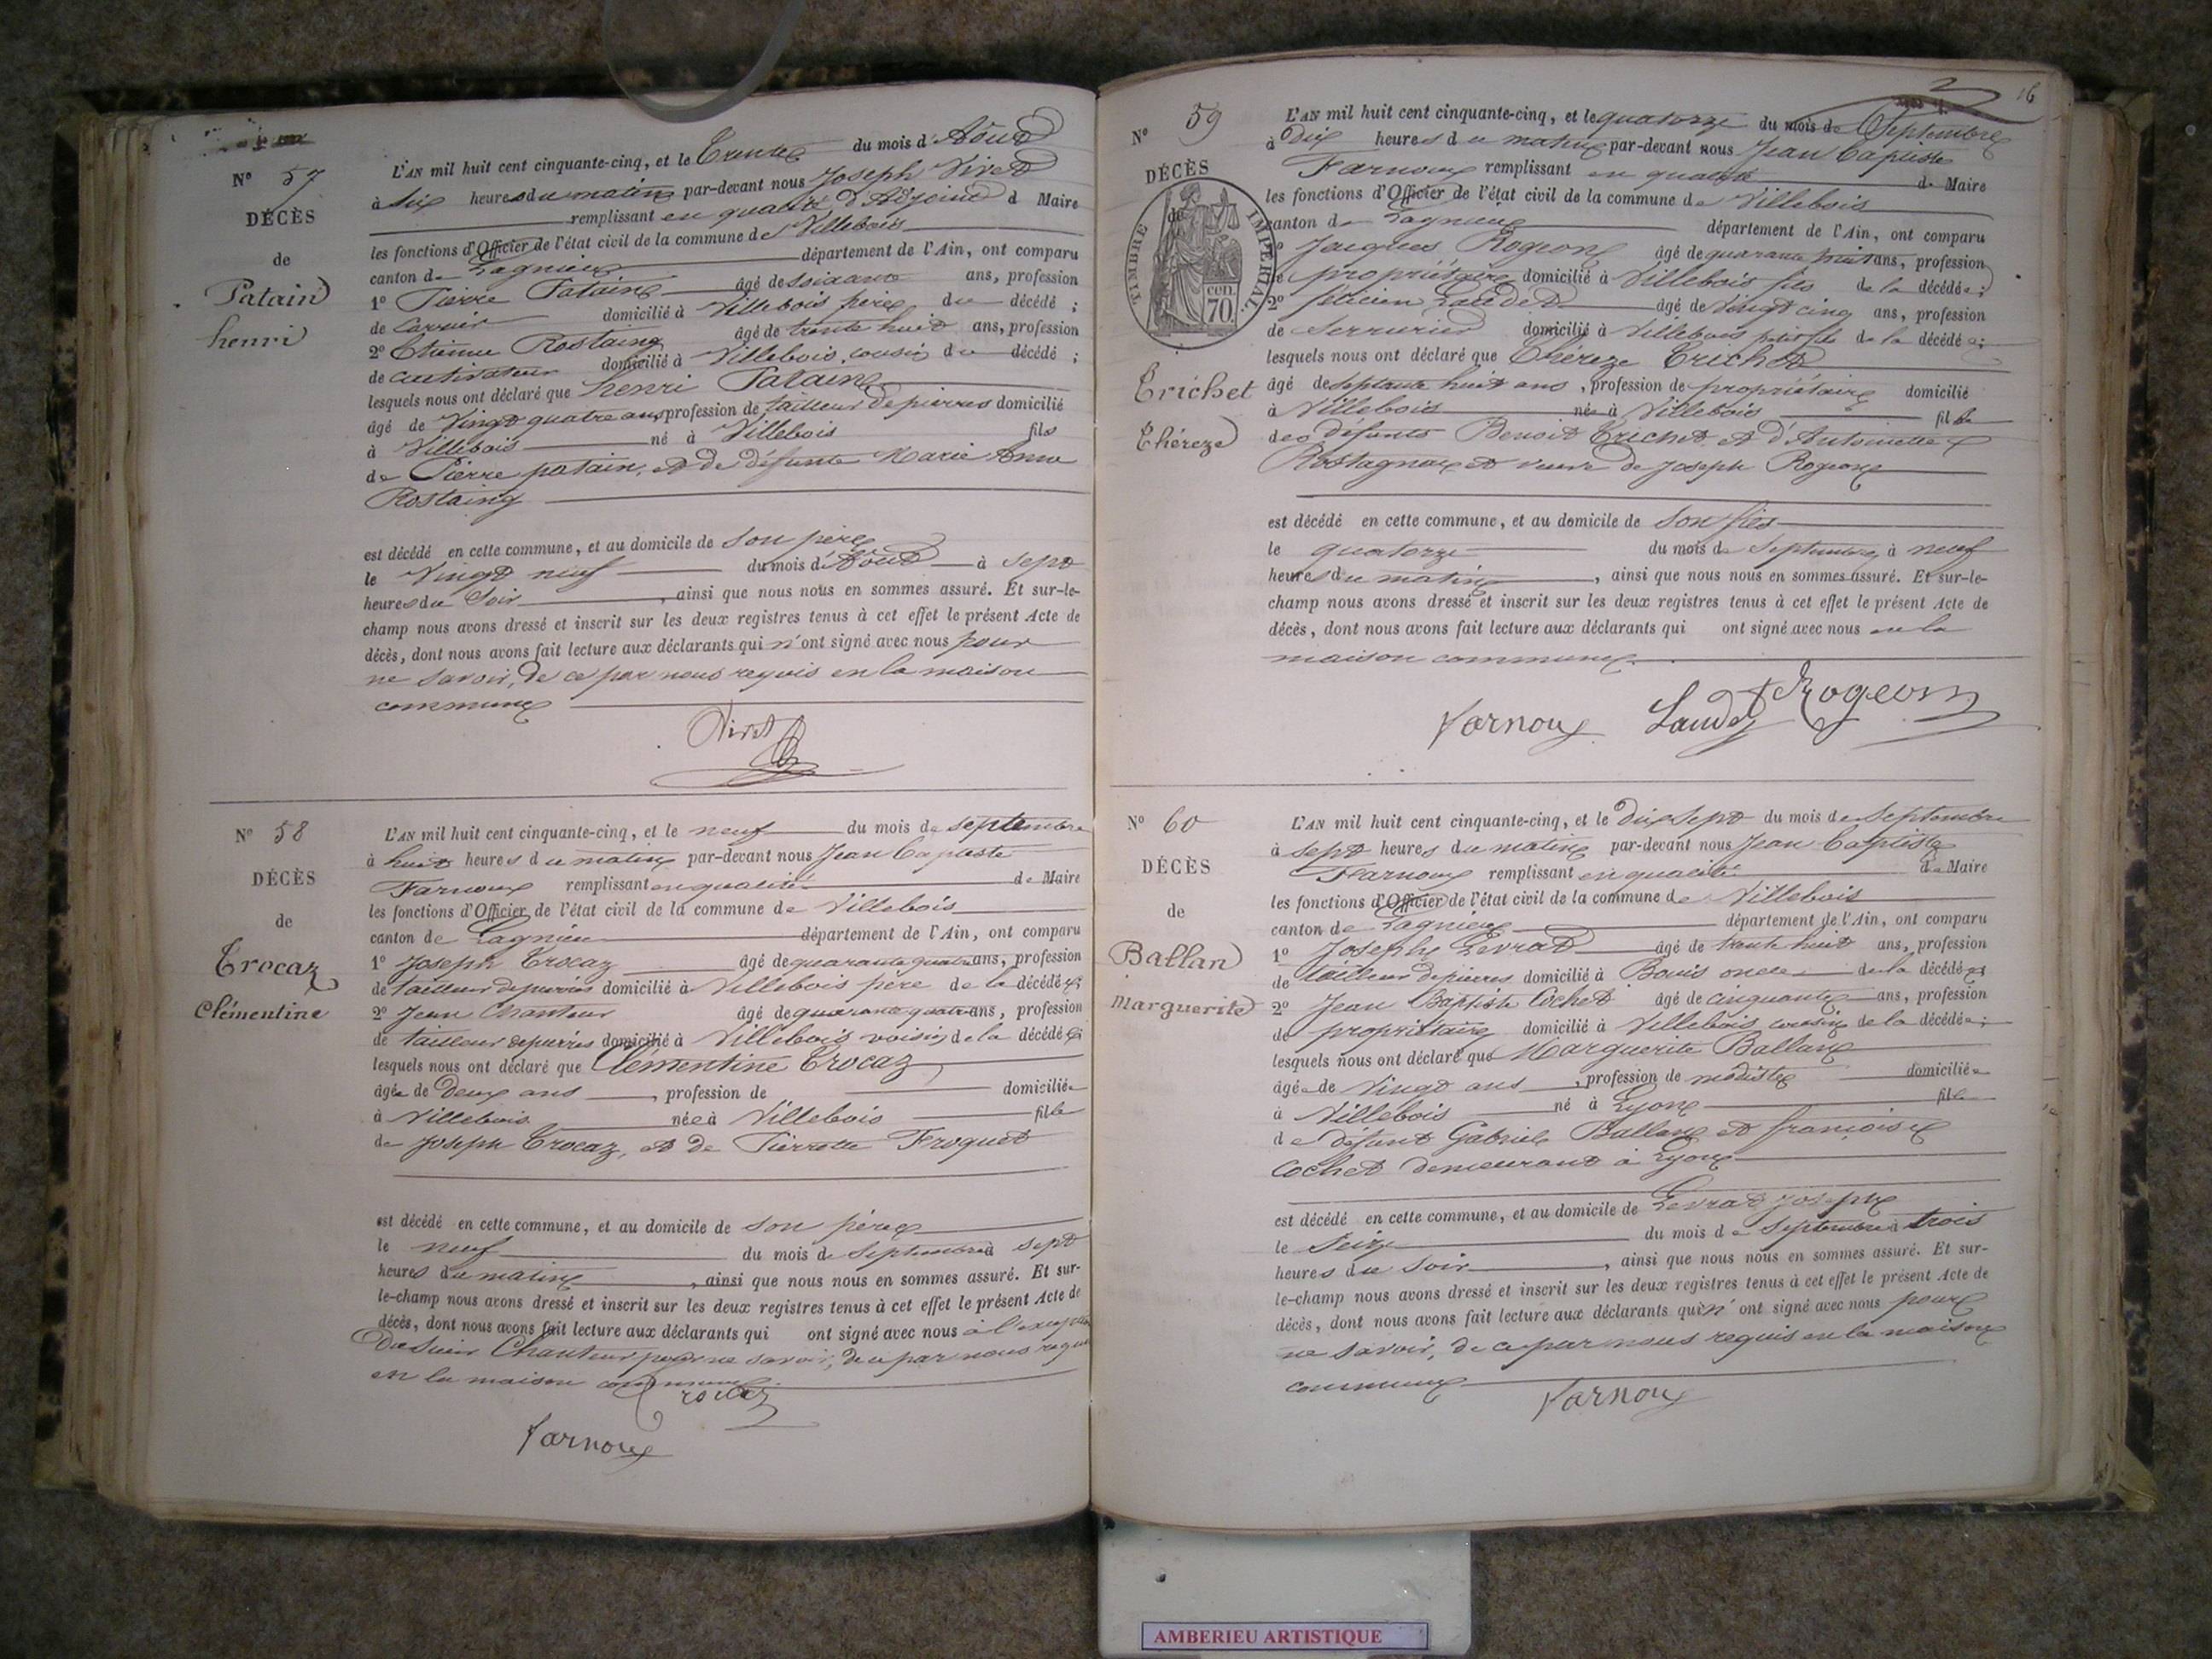 N° 57
DÉCÈS
de
Patain
henri
L'AN mil huit cent cinquante-cinq, et le Trente du mois d'Aôut
à six heures du matin par-devant nous Joseph Vivet
remplissant en qualité d'Adjoint d Maire
les fonctions d'Officier de l'état civil de la commune de Villebois
canton de Lagnieu département de l'Ain, ont comparu
1° Pierre Patain âgé de soixante ans, profession
de carrier domicilié à Villebois père du décédé ;
2° Etienne Rostaing âgé de trente huit ans, profession
de cultivateur domicilié à Villebois, cousin du décédé ;
lesquels nous ont déclaré que henri Patain
âgé de Vingt quatre ans, profession de tailleur de pierres domicilié
à Villebois né à Villebois fils
de Pierre patain, et de défunte Marie Anne
Rostaing
est décédé en cette commune, et au domicile de son père
le Vingt neuf du mois d'Aôut à sept
heures du soir, ainsi que nous nous en sommes assuré. Et sur-le-
champ nous avons dressé et inscrit sur les deux registres tenus à cet effet le présent Acte de
décès, dont nous avons fait lecture aux déclarants qui n'ont signé avec nous pour
ne savoir, de ce par nous requis en la maison
commune
Vivet
N° 58
DÉCÈS
de
Trocaz
Clémentine
L'AN mil huit cent cinquante-cinq, et le neuf du mois de septembre
à huit heures du matin par-devant nous Jean Baptiste
Farnoux remplissant en qualité de Maire
les fonctions d'Officier de l'état civil de la commune de Villebois
canton de Lagnieu département de l'Ain, ont comparu
1° Joseph Trocaz âgé de quarante quatre ans, profession
de tailleur de pierres domicilié à Villebois père de la décédée ;
2° Jean Chanteur âgé de quarante quatre ans, profession
de tailleur de pierres domicilié à Villebois voisin de la décédée ;
lesquels nous ont déclaré que Clémentine Trocaz
âgée de Deux ans, profession de domiciliée
à Villebois née à Villebois fille
de Joseph Trocaz, et de Pierrette Froquet
est décédé en cette commune, et au domicile de son père
le neuf du mois de Septembre à sept
heures du matin, ainsi que nous nous en sommes assuré. Et sur-
le-champ nous avons dressé et inscrit sur les deux registres tenus à cet effet le présent Acte de
décès, dont nous avons fait lecture aux déclarants qui ont signé avec nous à l'exception
du sieur Chanteur pour ne savoir, de ce par nous requis
en la maison commune
Trocaz
Farnoux
16
N° 59
DÉCÈS
de
TIMBRE IMPÉRIAL
70 cen.
Trichet
Théreze
L'AN mil huit cent cinquante-cinq, et le quatorze du mois de Septembre
à Dix heures du matin par-devant nous Jean Baptiste
Farnoux remplissant en qualité de Maire
les fonctions d'Officier de l'état civil de la commune de Villebois
canton de Lagnieu département de l'Ain, ont comparu
1° Jacques Rogeon âgé de quarante huit ans, profession
de propriétaire domicilié à Villebois fils de la décédée ;
2° félicien Laudet âgé de Vingt cinq ans, profession
de Serrurier domicilié à Villebois petit fils de la décédée ;
lesquels nous ont déclaré que Théreze Trichet
âgé de septante huit ans, profession de propriétaire domicilié
à Villebois née à Villebois fille
des défunts Benoit Trichet et d'Antoinette
Rostagnoux et veuve de Joseph Rogeon
est décédé en cette commune, et au domicile de son fils
le quatorze du mois de Septembre à neuf
heures du matin, ainsi que nous nous en sommes assuré. Et sur-le-
champ nous avons dressé et inscrit sur les deux registres tenus à cet effet le présent Acte de
décès, dont nous avons fait lecture aux déclarants qui ont signé avec nous en la
maison commune
Farnoux Laudet Rogeon
N° 60
DÉCÈS
de
Ballan
Marguerite
L'AN mil huit cent cinquante-cinq, et le Dix sept du mois de Septembre
à sept heures du matin par-devant nous Jean Baptiste
Farnoux remplissant en qualité de Maire
les fonctions d'Officier de l'état civil de la commune de Villebois
canton de Lagnieu département de l'Ain, ont comparu
1° Joseph Levrat âgé de trente huit ans, profession
de tailleur de pierres domicilié à Bouis oncle de la décédée ;
2° Jean Baptiste Cochet âgé de cinquante ans, profession
de propriétaire domicilié à Villebois cousin de la décédée ;
lesquels nous ont déclaré que Marguerite Ballan
âgée de Vingt ans, profession de modiste domiciliée
à Villebois né à Lyon fille
de défunt Gabriel Ballan et françoise
Cochet demeurant à Lyon
est décédé en cette commune, et au domicile de Levrat Joseph
le Seize du mois de Septembre à trois
heures du soir, ainsi que nous nous en sommes assuré. Et sur-
le-champ nous avons dressé et inscrit sur les deux registres tenus à cet effet le présent Acte de
décès, dont nous avons fait lecture aux déclarants qui n'ont signé avec nous pour
ne savoir, de ce par nous requis en la maison
commune
Farnoux
AMBERIEU ARTISTIQUE